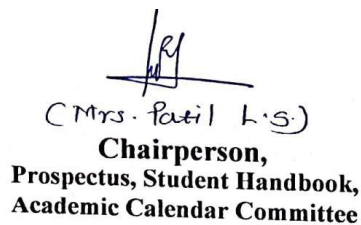 (Mrs. Patil L.S.)
Chairperson,
Prospectus, Student Handbook,
Academic Calendar Committee